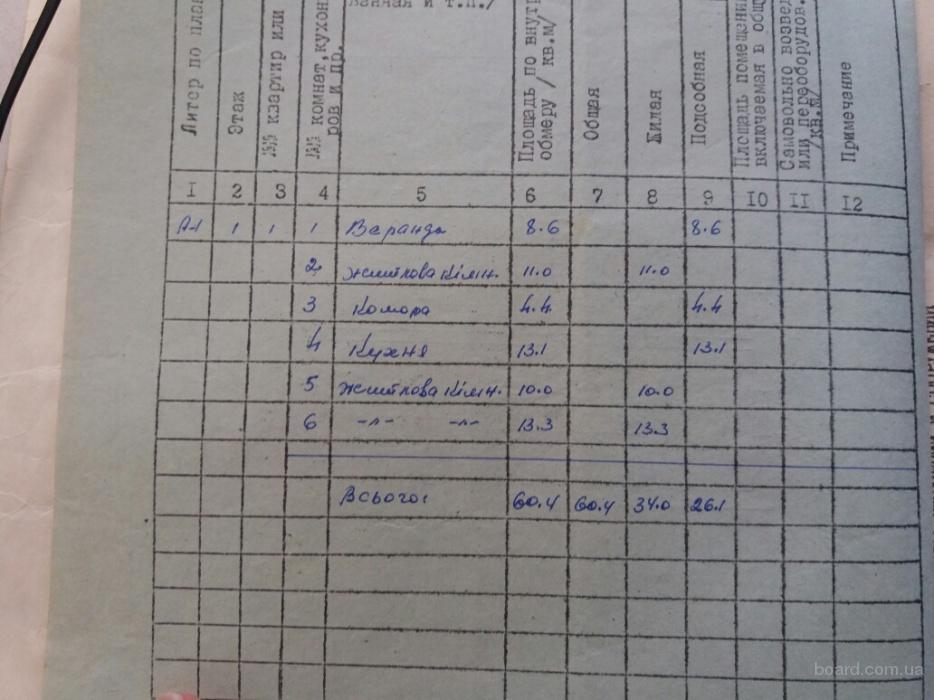 ванная и т.п./
Литер по план
Этаж
№№ квартир или
№№ комнат, кухон
ров и др.
Площадь по внутр
обмеру / кв.м/
Общая
Жилая
Подсобная
Площадь помещени
включаемая в общ
Самовольно возвед
или переоборудов.
/кв.м/
Примечание
I 2 3 4 5 6 7 8 9 IO II I2
А-1 1 1 1 Веранда 8.6 8.6
2 житлова кімн. 11.0 11.0
3 Комора 4.4 4.4
4 Кухня 13.1 13.1
5 житлова кімн. 10.0 10.0
6 -"- -"- 13.3 13.3
Всього: 60.4 60.4 34.0 26.1
board.com.ua